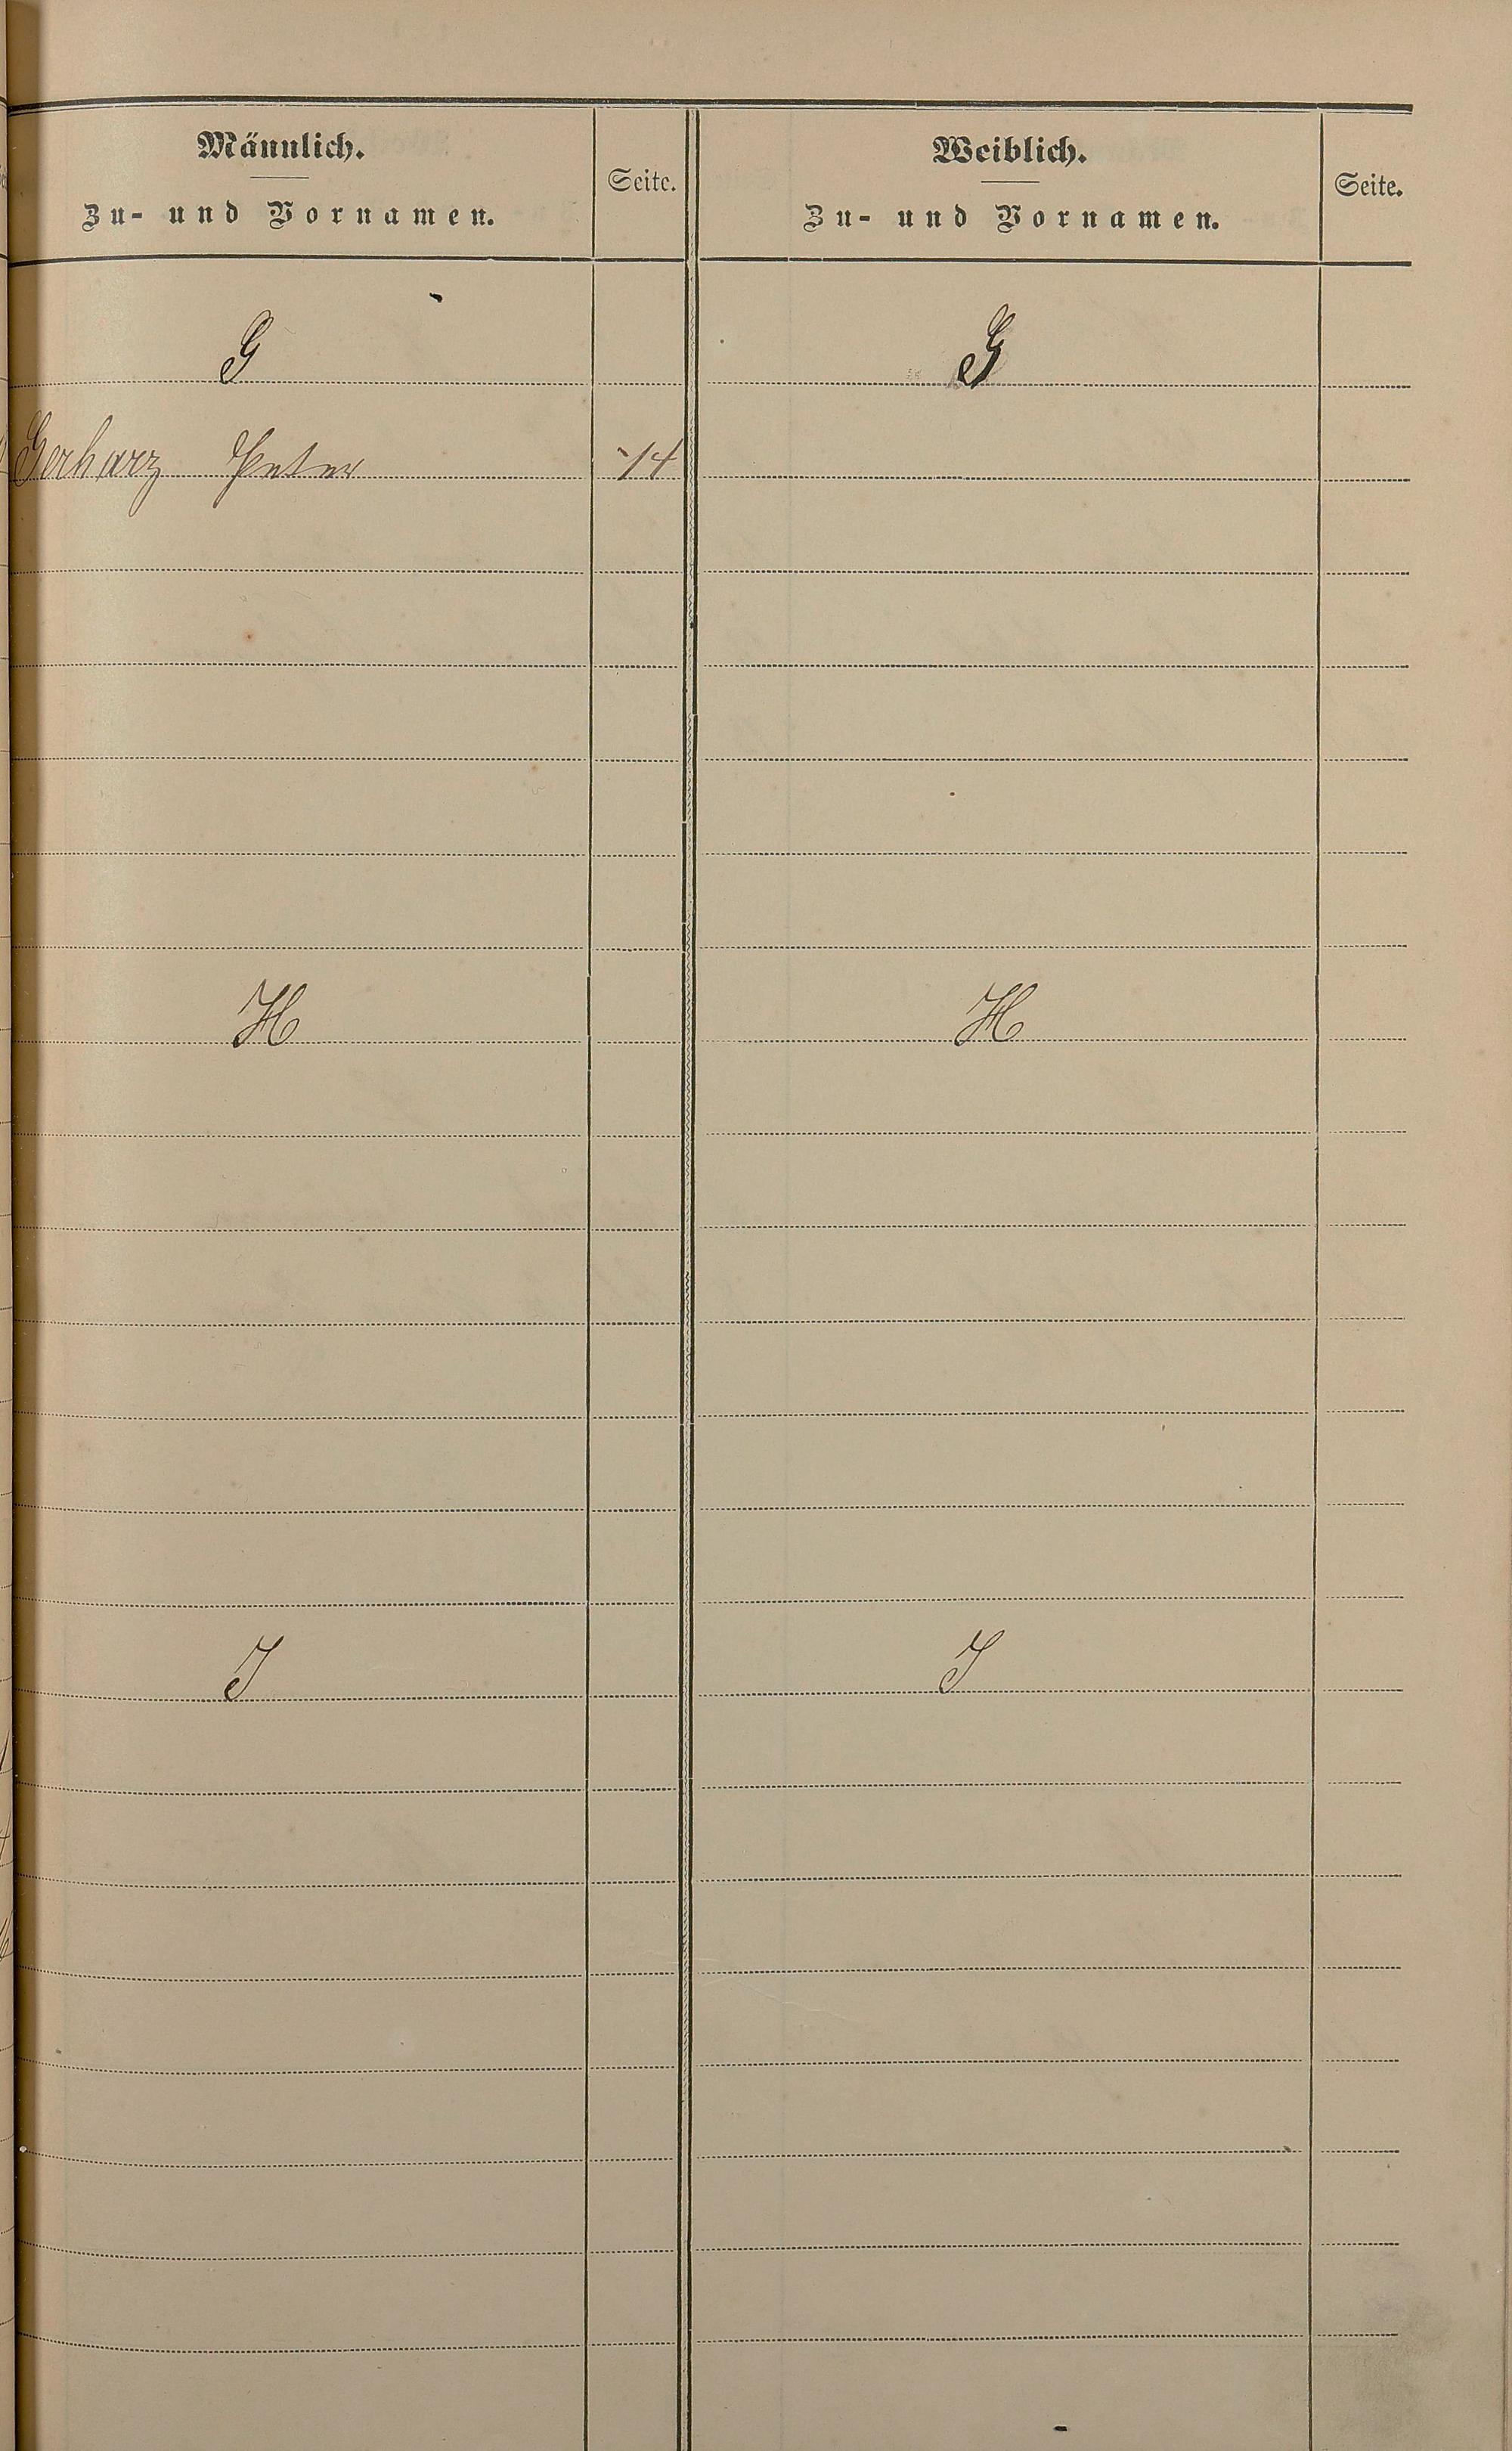 Männlich.
Zu- und Vornamen.
Seite.
Weiblich.
Zu- und Vornamen.
Seite.
G
G
Gerharz Peter
14
H
H
I
I